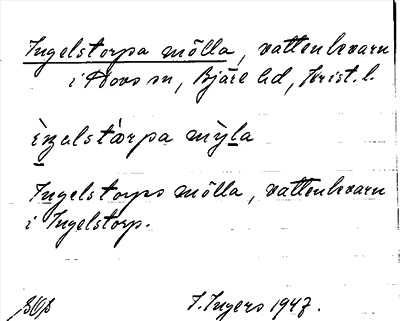 Ingelstorpa mölla, vattenkvarn
i Hovs sn, Bjäre hd, Krist. l.
èŋəlstàrpa mỳla
Ingelstorps mölla, vattenkvarn
i Ingelstorp.
I. Ingers 1947.